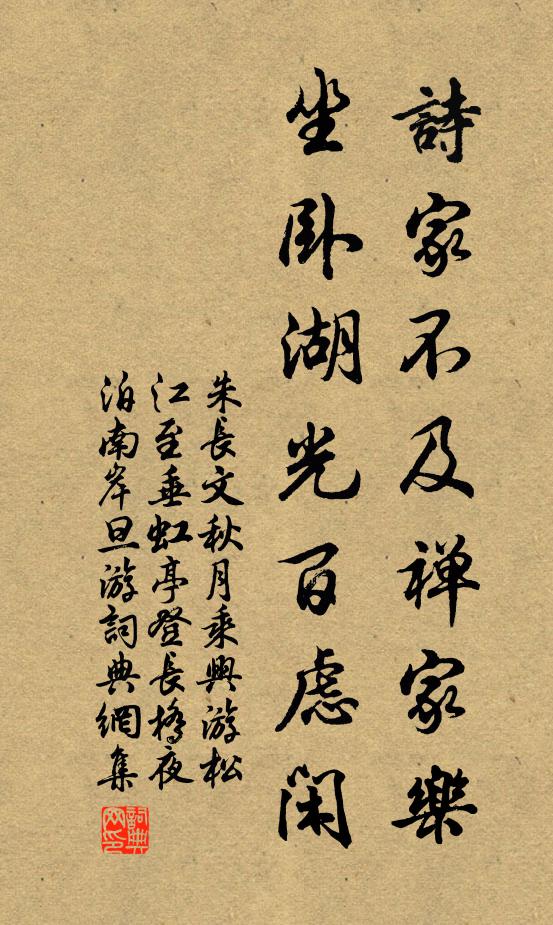 詩家不及禅家樂
坐卧湖光百慮閑
朱長文秋月乘興游松
江至垂虹亭登長橋夜
泊南岸旦游詞典網集
詞典
网印